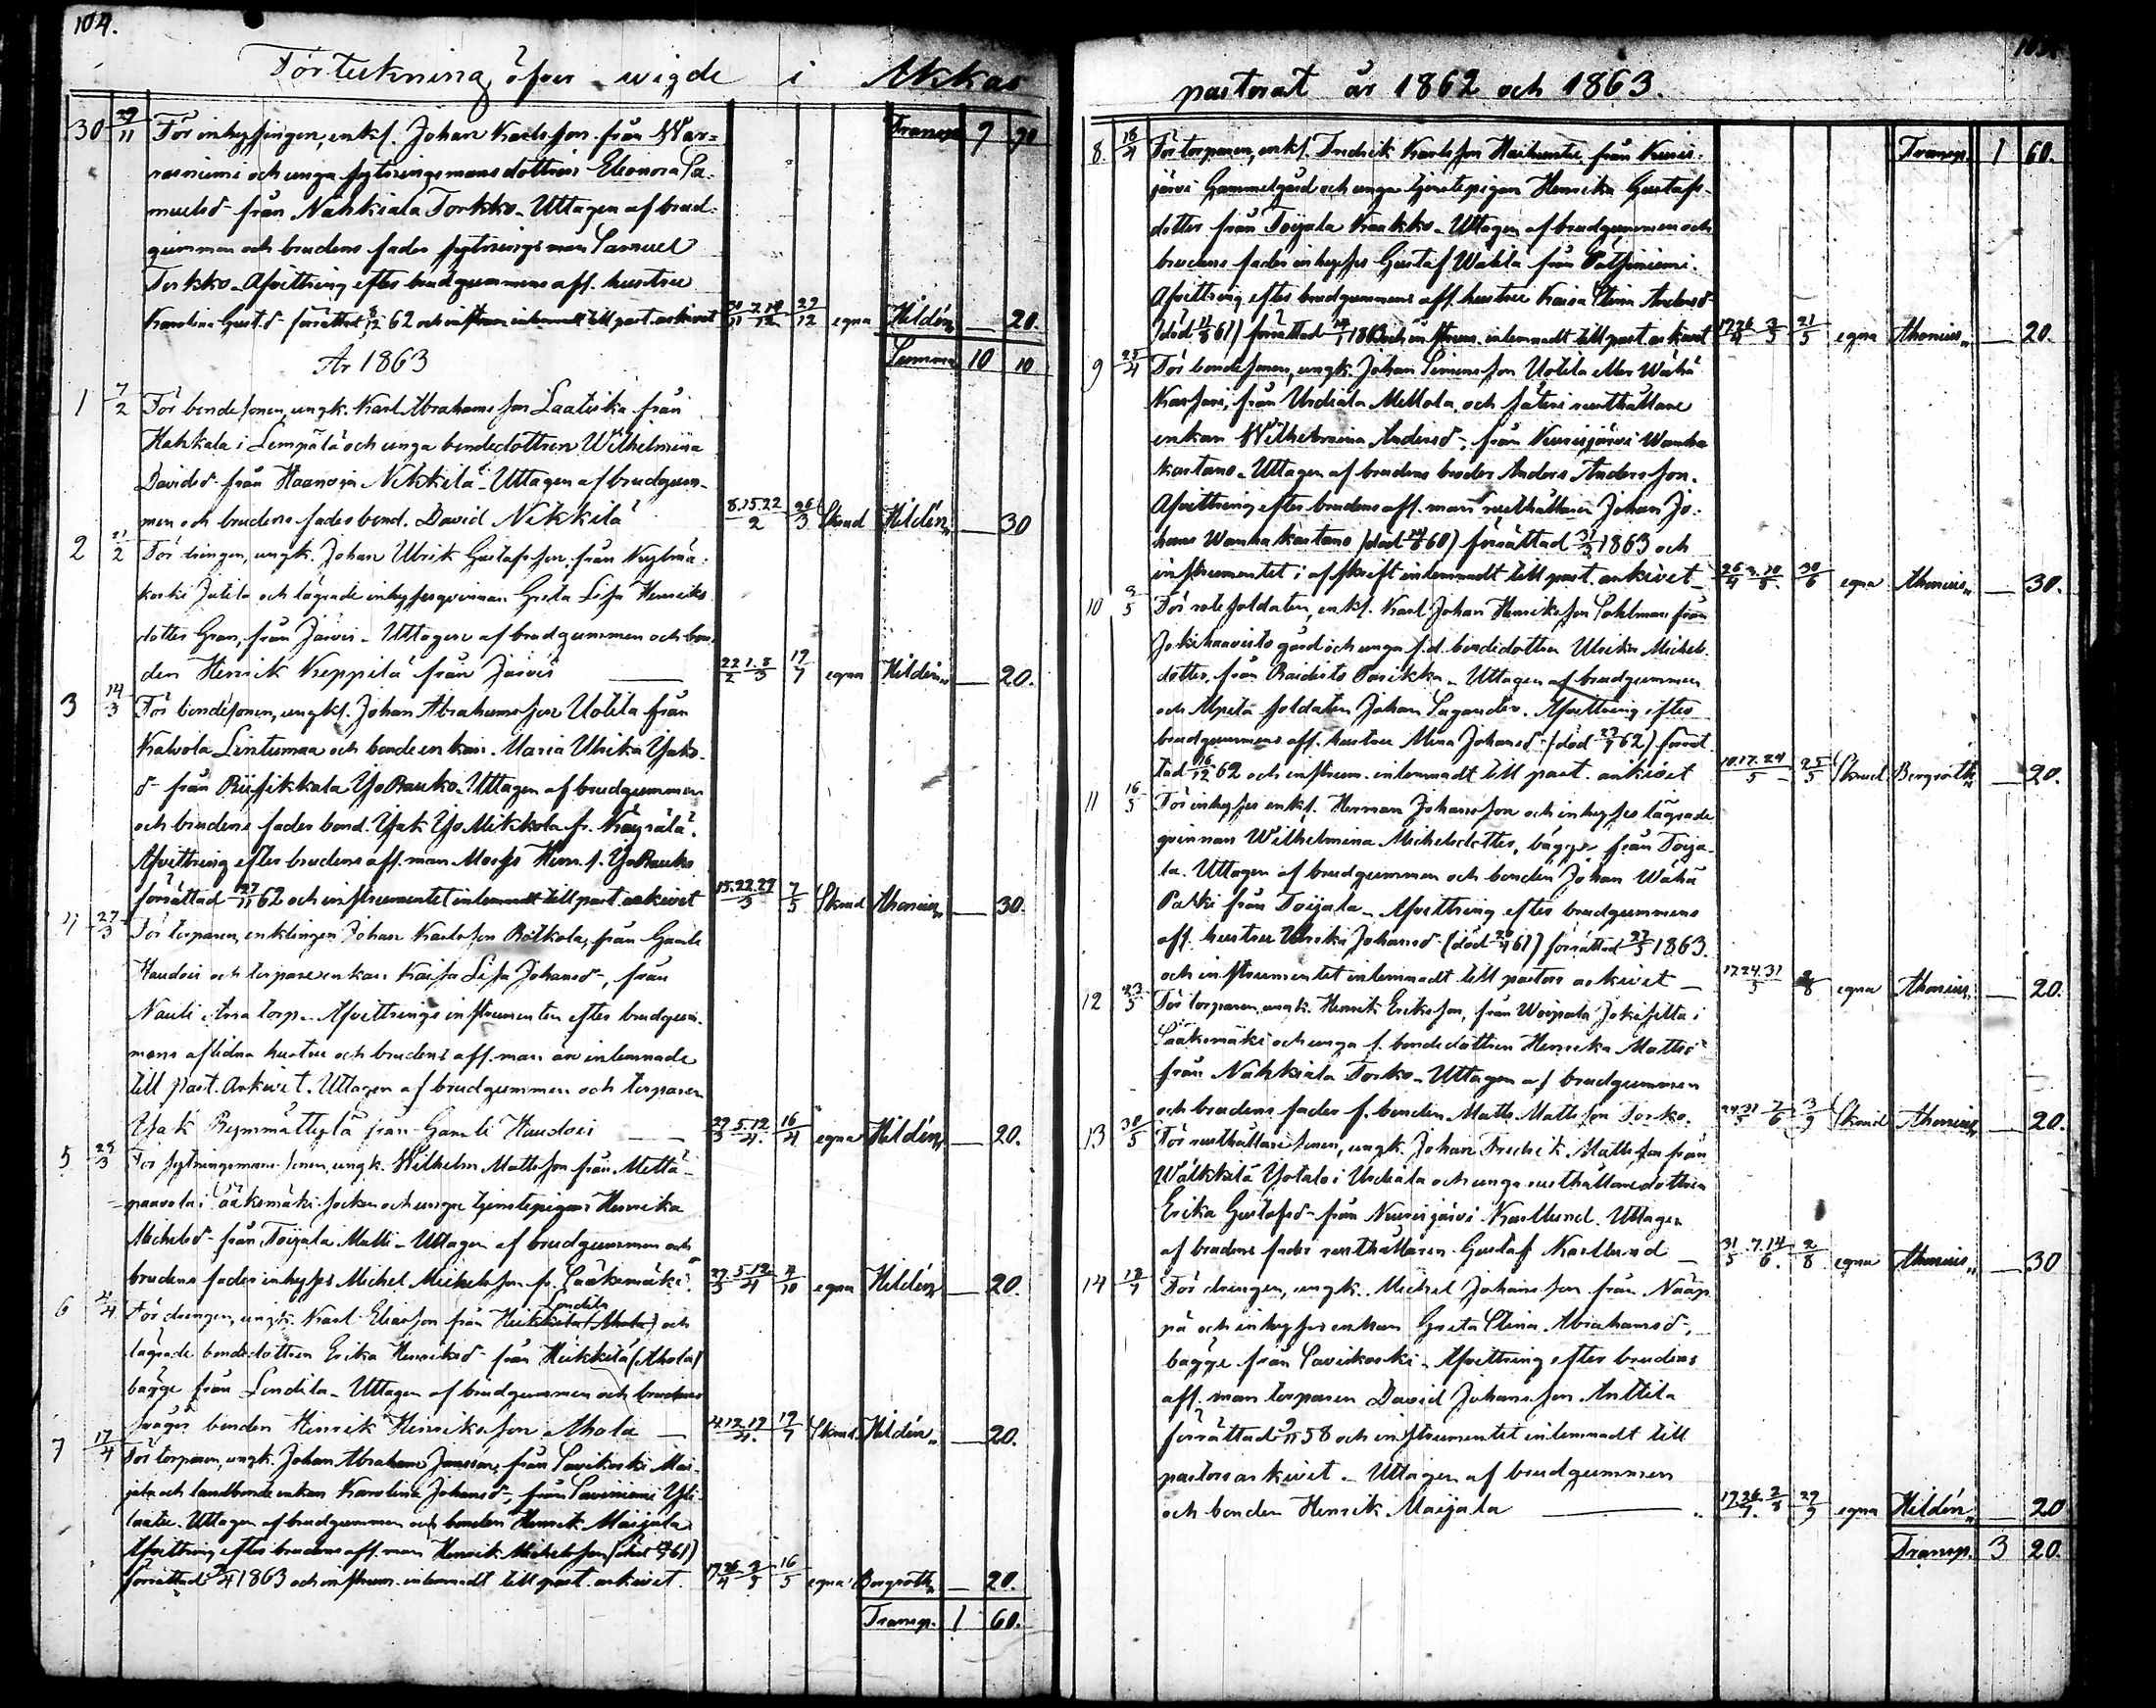 104.
Förteckning öfver wigde i Akkas
30 29/11 För inhysingen, enkl. Johan Karlsson från War- Transp. 9 90
rasniemi och unga sytningsmansdottren Eleonora Sa-
muelsd från Nahkiala Torkko. Uttagen af brud-
gummen och brudens fader sytningsman Samuel
Torkko. Afvittring efter brudgummens afl. hustru
Karolina Gust.d förrättad 62 och instrum. inlemnadt till past. arkivet 30/11 7.14/12 27/12 egna Hildén — 20.
År 1863 Summa 10 10
1 7/2 För bondesonen, ungk. Karl Abrahamsson Laatika från
Hahkala i Lempälä och unga bondedottren Wilhelmina
Davidsd från Haanoja Nikkilä. Uttagen af brudgum-
men och brudens fader bond. David Nikkilä 8.15.22/2 26/3 Skrud Hildén — 30
2 21/2 För drengen, ungk. Johan Ulrik Gustafsson från Kylmä-
koski Jutila och lägrade inhysesqvinnan Greta Lisa Henriks-
dotter Gran, från Jarvis. Uttagen af brudgummen och bon-
den Henrik Keppilä från Jarvis 22/2 1.8/3 19/7 egna Hildén — 20.
3 14/3 För bondesonen, ungkl. Johan Abrahamsson Uotila från
Kalvola Lintumaa och bondeenkan Maria Ulrika Isaks-
d från Riisikkala Yrö Rauko. Uttagen af brudgummen
och brudens fader bond. Isak Yrö Mikkola fr. Kägrälä.
Afvittring efter brudens afl. man Moses Henr.s. Yrö Rauko
förrättad 27/11 62 och instrumentet inlemnadt till past. arkivet 15.22.29/3 7/5 Skrud Ahonius — 30.
4 27/3 För torparen, enklingen Johan Karlsson Rölkola, från Gamle
Haudois och torpareenkan Kaisa Lisa Johansd, från
Nauli Arra torp. Afvittringsinstrumenten efter brudgum-
mens aflidna hustru och brudens afl. man äro inlemnade
till past. Arkivet. Uttagen af brudgummen och torparen
Isak Rymmättylä från Gamle Haudois 29/3 5.12/4 16/4 egna Hildén — 20.
5 29/3 För sytningsmans sonen, ungk. Wilhelm Mattsson från Mettä-
paavola i Sääksmäki socken och unga tjenstepigan Henrika
Michelsd från Toijala Matti. Uttagen af brudgummen och
brudens fader inhyses Michel Michelsson fr. Sääksmäki. 29/3 5.12/4 4/10 egna Hildén — 20.
6 4/4 För drengen, ungk. Karl Eliasson från Heikkilä (Ahola) och
lägrade bondedottren Erika Henriksd från Heikkilä (Ahola)
bägge från Londila. Uttagen af brudgummen och brudens
svåger bonden Henrik Henriksson Ahola — 4.12.19/4 19/7 Skrud. Hildén — 20.
7 17/4 För torparen, ungk. Johan Abraham Jansson, från Savikoski Mai-
jala och landbondeenkan Karolina Johansd, från Saviniemi Yli-
laatu. Uttagen af brudgummen och bonden Henrik Maijala
Afvittring efter brudens afl. man Henrik Michelsson (död 61)
förrättad 1863 och instrum. inlemnadt till past. arkivet. 19.26/4 3/5 16/5 egna Bergroth — 20.
Transp. 1 60.
pastorat år 1862 och 1863.
8. 18/4 För torparen, enkl. Fredrik Karlsson Haihunta från Kuris- Transp. 1 60.
järvi Gammelgård och unga tjenstepigan Henrika Gustafs-
dotter från Toijala Kaakko. Uttagen af brudgummen och
brudens fader inhyses Gustaf Wähä från Pätsiniemi.
Afvittring efter brudgummens afl. hustru Kaisa Stina Andersd
(död 61) förrättad 1863 och instrum. inlemnadt till past. arkivet 19.26/4 3/5 21/5 egna Ahonius — 20.
9 25/4 För bondesonen, ungk. Johan Simonsson Uotila eller Wähä
Karsari, från Urdiala Mellola, och säteri rusthållare
enkan Wilhelmina Andersd, från Kurisjärvi Wanha
kartano. Uttagen af brudens broder Anders Andersson.
Afvittring efter brudens afl. man rusthållaren Johan Jo-
hans Wanhakartano (död 60) förrättad 31/3 1863 och
instrumentet i afskrift inlemnadt till past. arkivet 26/4 3.10/5 30/6 egna Ahonius — 30.
10 9/5 För rotesoldaten, enkl. Karl Johan Henriksson Sahlman från
Jokihaavisto gård och unga f.d. bondedottren Ulrika Michels-
dotter, från Raidisto Pärikka. Uttagen af brudgummen
och Alpila soldaten Johan Sagander. Afvittring efter
brudgummens afl. hustru Mina Johansd (död 62) förrät-
tad 16/12 62 och instrum. inlemnadt till past. arkivet 10.17.24/5 25/5 Skrud Bergroth — 20.
11 16/5 För inhyses enkl. Herman Johansson och inhyses lägrade
qvinnan Wilhelmina Michelsdotter, bägge från Toija-
la. Uttagen af brudgummen och bonden Johan Wähä
Pakki från Toijala. Afvittring efter brudgummens
afl. hustru Ulrika Johansd (död 61) förrättad 27/3 1863.
och instrumentet inlemnadt till pastors arkivet — 17.24.31/5 2/8 egna Ahonius — 20.
12 23/5 För torparen, ungk. Henrik Eriksson, från Woipala Jokisilta i
Sääksmäki och unga f. bondedottren Henrika Mattsd
från Nahkiala Torko. Uttagen af brudgummen
och brudens fader f. bonden Matts Mattsson Torko. 24.31/5 7/6 3/9 Skrud Ahonius — 20.
13 30/5 För rusthållaresonen, ungk. Johan Fredrik Mattsson från
Wälkkilä Yötalo i Urdiala och unga rusthållaredottren
Erika Gustafsd från Kurisjärvi Karllund. Uttagen
af brudens fader rusthållaren Gustaf Karllund — 31/5 7.14/6. 2/8 egna Ahonius — 30
14 18/7 För drengen, ungk. Michel Johansson från Nääp-
pä och inhyses enkan Greta Stina Abrahamsd,
bägge från Savikoski. Afvittring efter brudens
afl. man torparen David Johansson Anttila
förrättad 58 och instrumentet inlemnadt till
pastorsarkivet. Uttagen af brudgummen
och bonden Henrik Maijala 19.26/7. 2/8 27/9 egna Hildén — 20
Transp. 3 20.